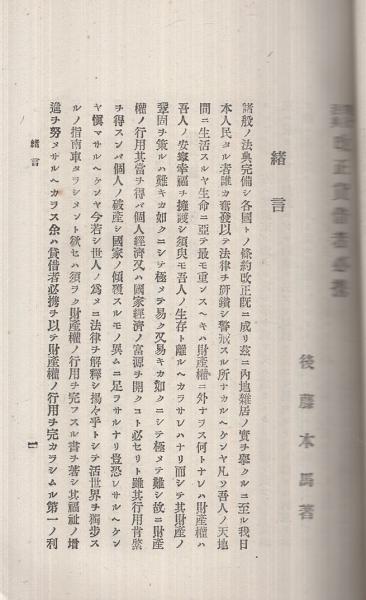 緒言
諸般ノ法典完備シ各國トノ條約改正既ニ成リ玆ニ內地雜居ノ實ヲ擧クルニ至ル我日
本人民タル者誰カ奮發以テ法律ヲ硏鑽シ警戒スル所ナカルヘケンヤ凡ソ吾人ノ天地
間ニ生活スルヤ生命ニ亞テ最モ重ンスヘキハ財產權ニ外ナラス何トナレハ財產權ハ
吾人ノ安寧幸福ヲ擁護シ須臾モ吾人ノ生存ト離ルヘカラサレハナリ而シテ其財產ノ
鞏固ヲ策ルハ難キカ如クニシテ極メテ易ク又易キカ如クニシテ極メテ難シ故ニ財產
權ノ行用其當ヲ得バ個人經濟又ハ國家經濟ノ富源ヲ開クコト必セリト雖其行用肯綮
ヲ得スンバ個人ノ破產シ國家ノ傾覆スルモノ異ムニ足ラサルナリ豈恐レサルヘケン
ヤ愼マサルヘケンヤ今若シ世人ノ爲メニ法律ヲ解釋シ揚々乎トシテ活世界ヲ獨步ス
ルノ指南車タラシメント欲セハ須ラク財產權ノ行用ヲ完フスル書ヲ著シ其福祉ノ增
進ヲ努メサルヘカラス余ハ貸借者必携ヲ以テ財產權ノ行用ヲ完カラシムル第一ノ利
緒言
一
後藤本馬著